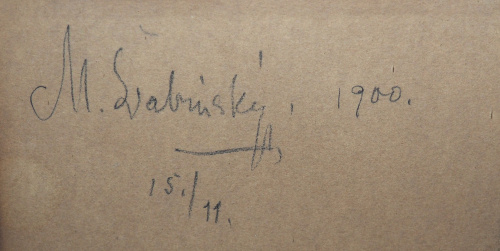 M. Švabinský, 1900.
15./11.